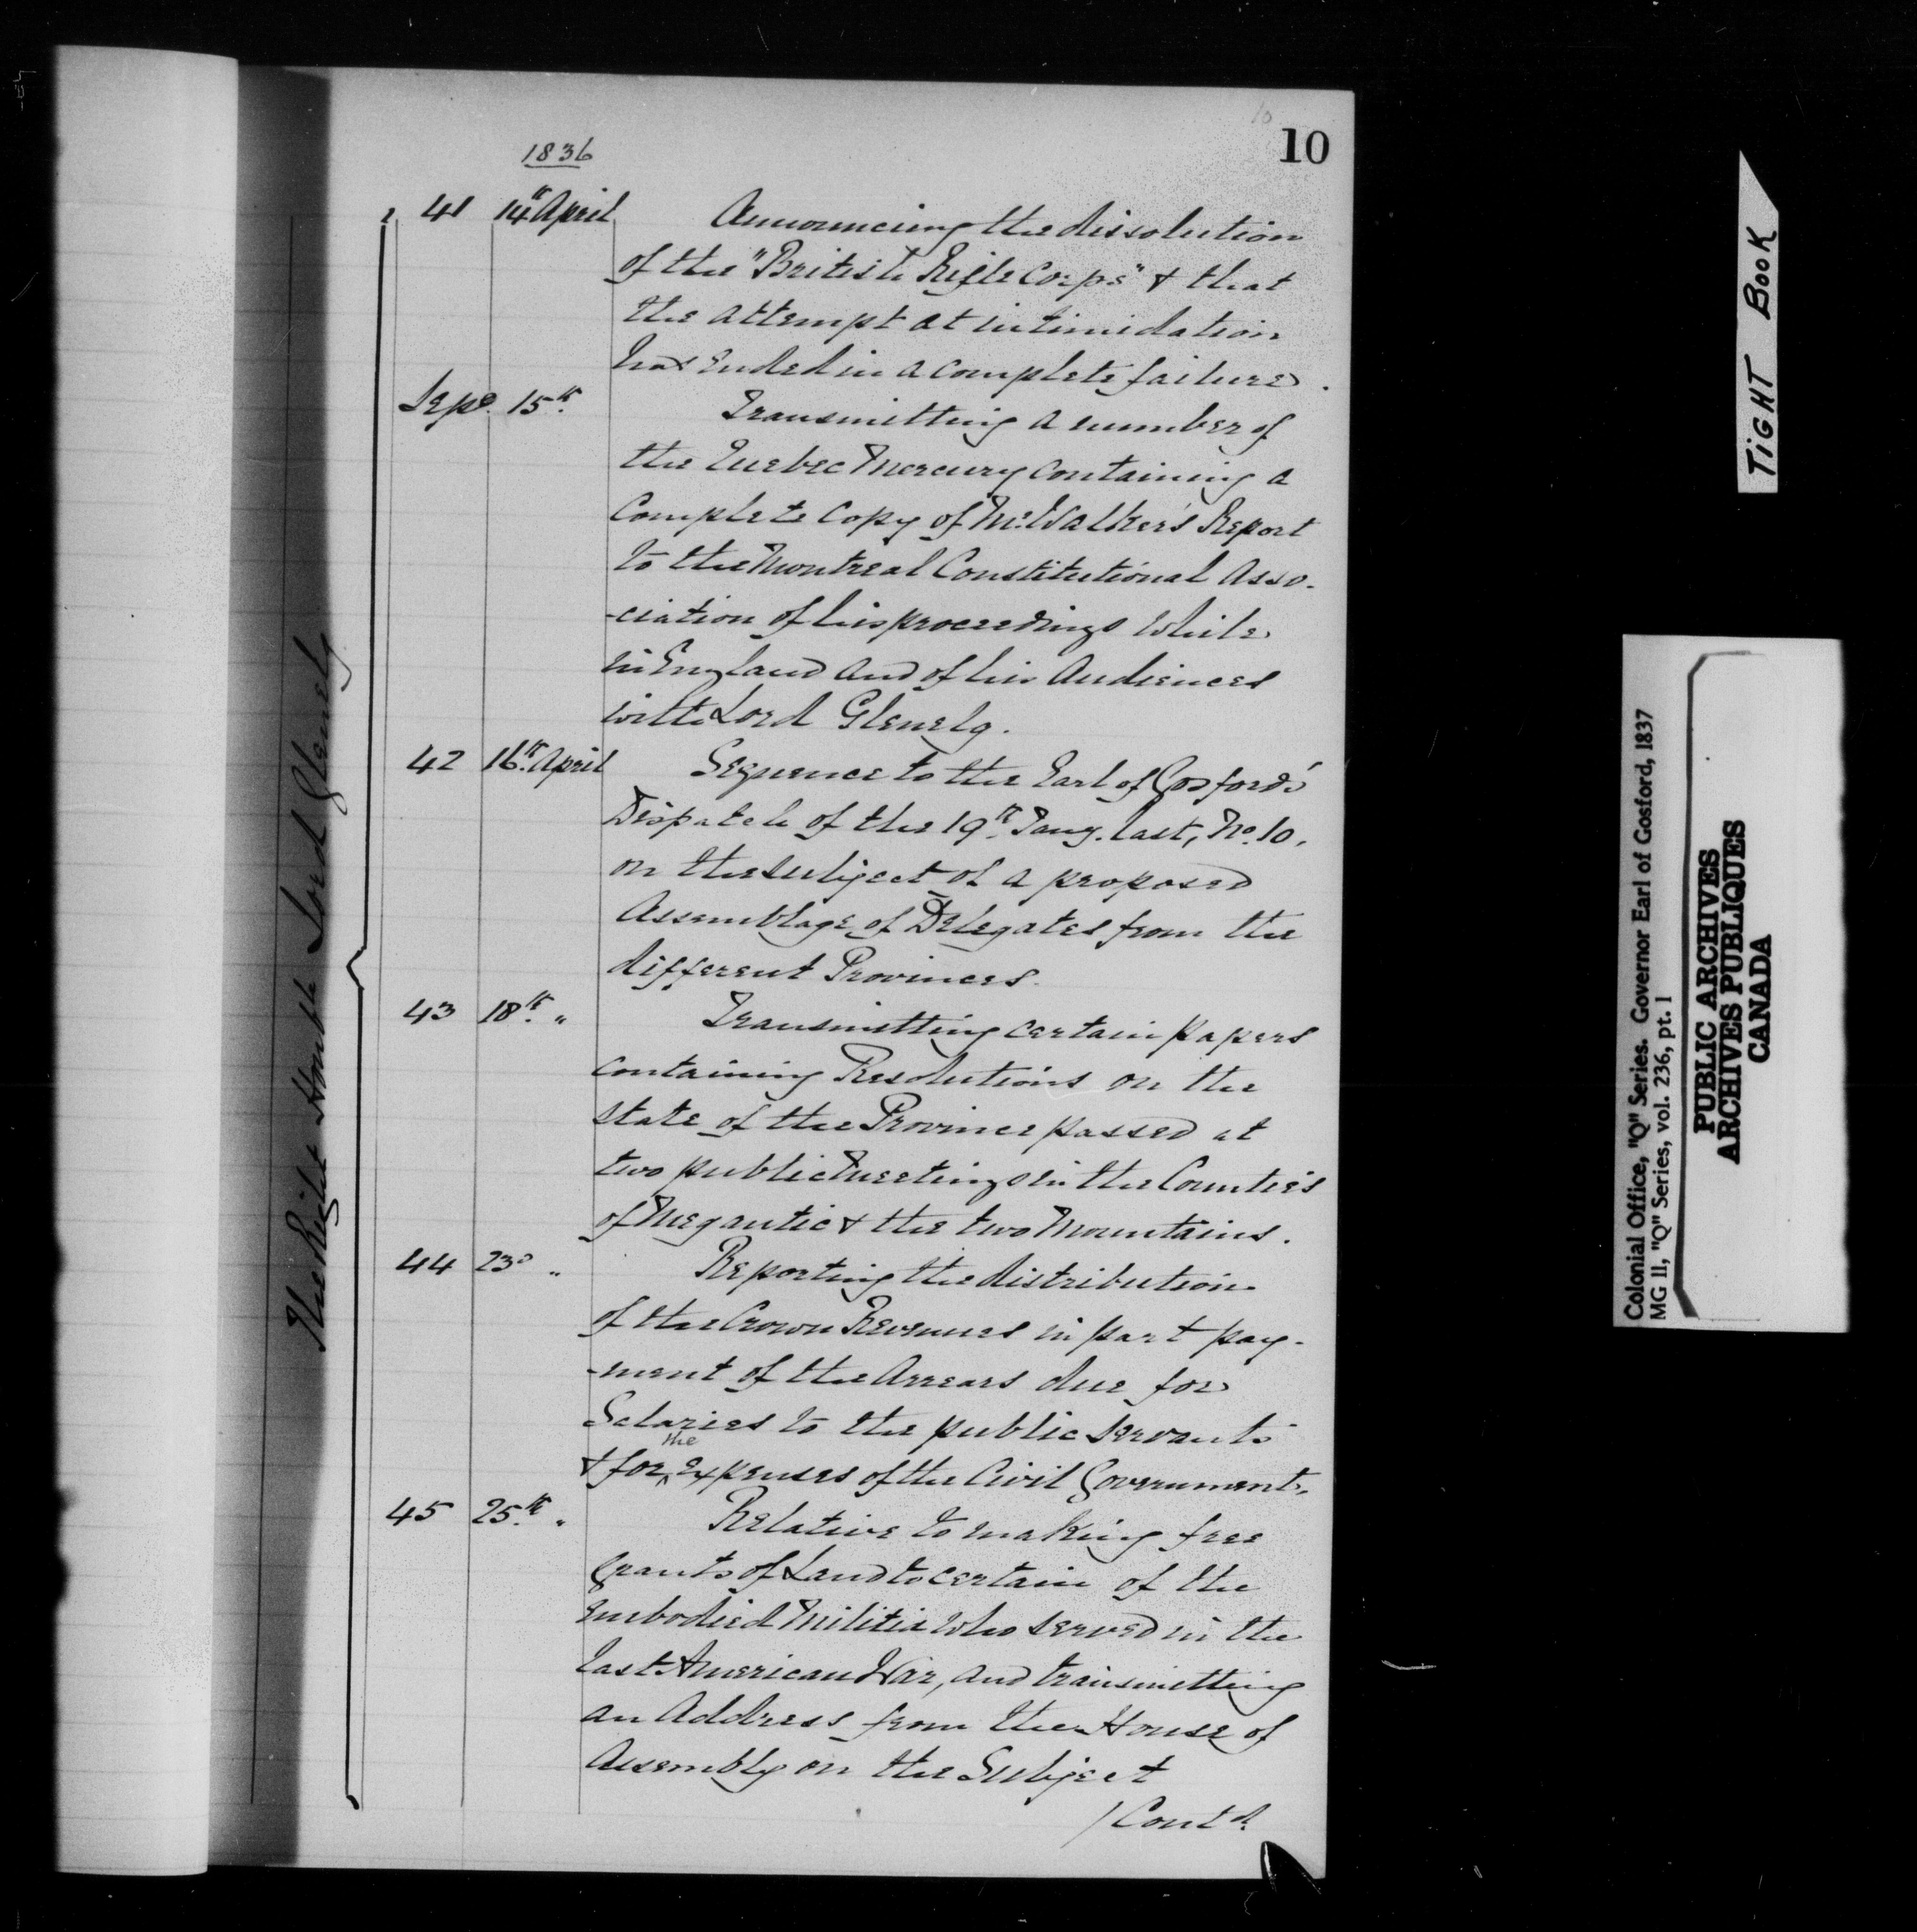 10
10
1836
The Right Honble Lord Glenelg
41 14th April Announcing the dissolution
of the "British Rifle Corps" & that
the attempt at intimidation
has ended in a complete failure.
Sepe. 15th. Transmitting a number of
the Quebec Mercury containing a
Complete Copy of Mr. Walker's Report
to the Montreal Constitutional Asso-
-ciation of his proceedings while
in England and of his Audiences
with Lord Glenelg.
42 16th. April Sequence to the Earl of Gosford's
Dispatch of the 19th. Jany. last, No. 10.
on the subject of a proposed
Assemblage of Delegates from the
different Provinces.
43 18th. " Transmitting certain papers
containing Resolutions on the
state of the Province passed at
two public Meetings in the Counties
of Megantic & the two Mountains.
44 23d " Reporting the distribution
of the Crown Revenues in part pay-
-ment of the Arrears due for
Salaries to the public servants
& for the expenses of the Civil Government.
45 25th. " Relative to making free
grants of Land to certain of the
Embodied Militia who served in the
last American War, and transmitting
an Address from the House of
Assembly on the Subject
/Contd.
TIGHT BOOK
Colonial Office, "Q" Series. Governor Earl of Gosford, 1837
MG 11, "Q" Series, vol. 236, pt. 1
PUBLIC ARCHIVES
ARCHIVES PUBLIQUES
CANADA